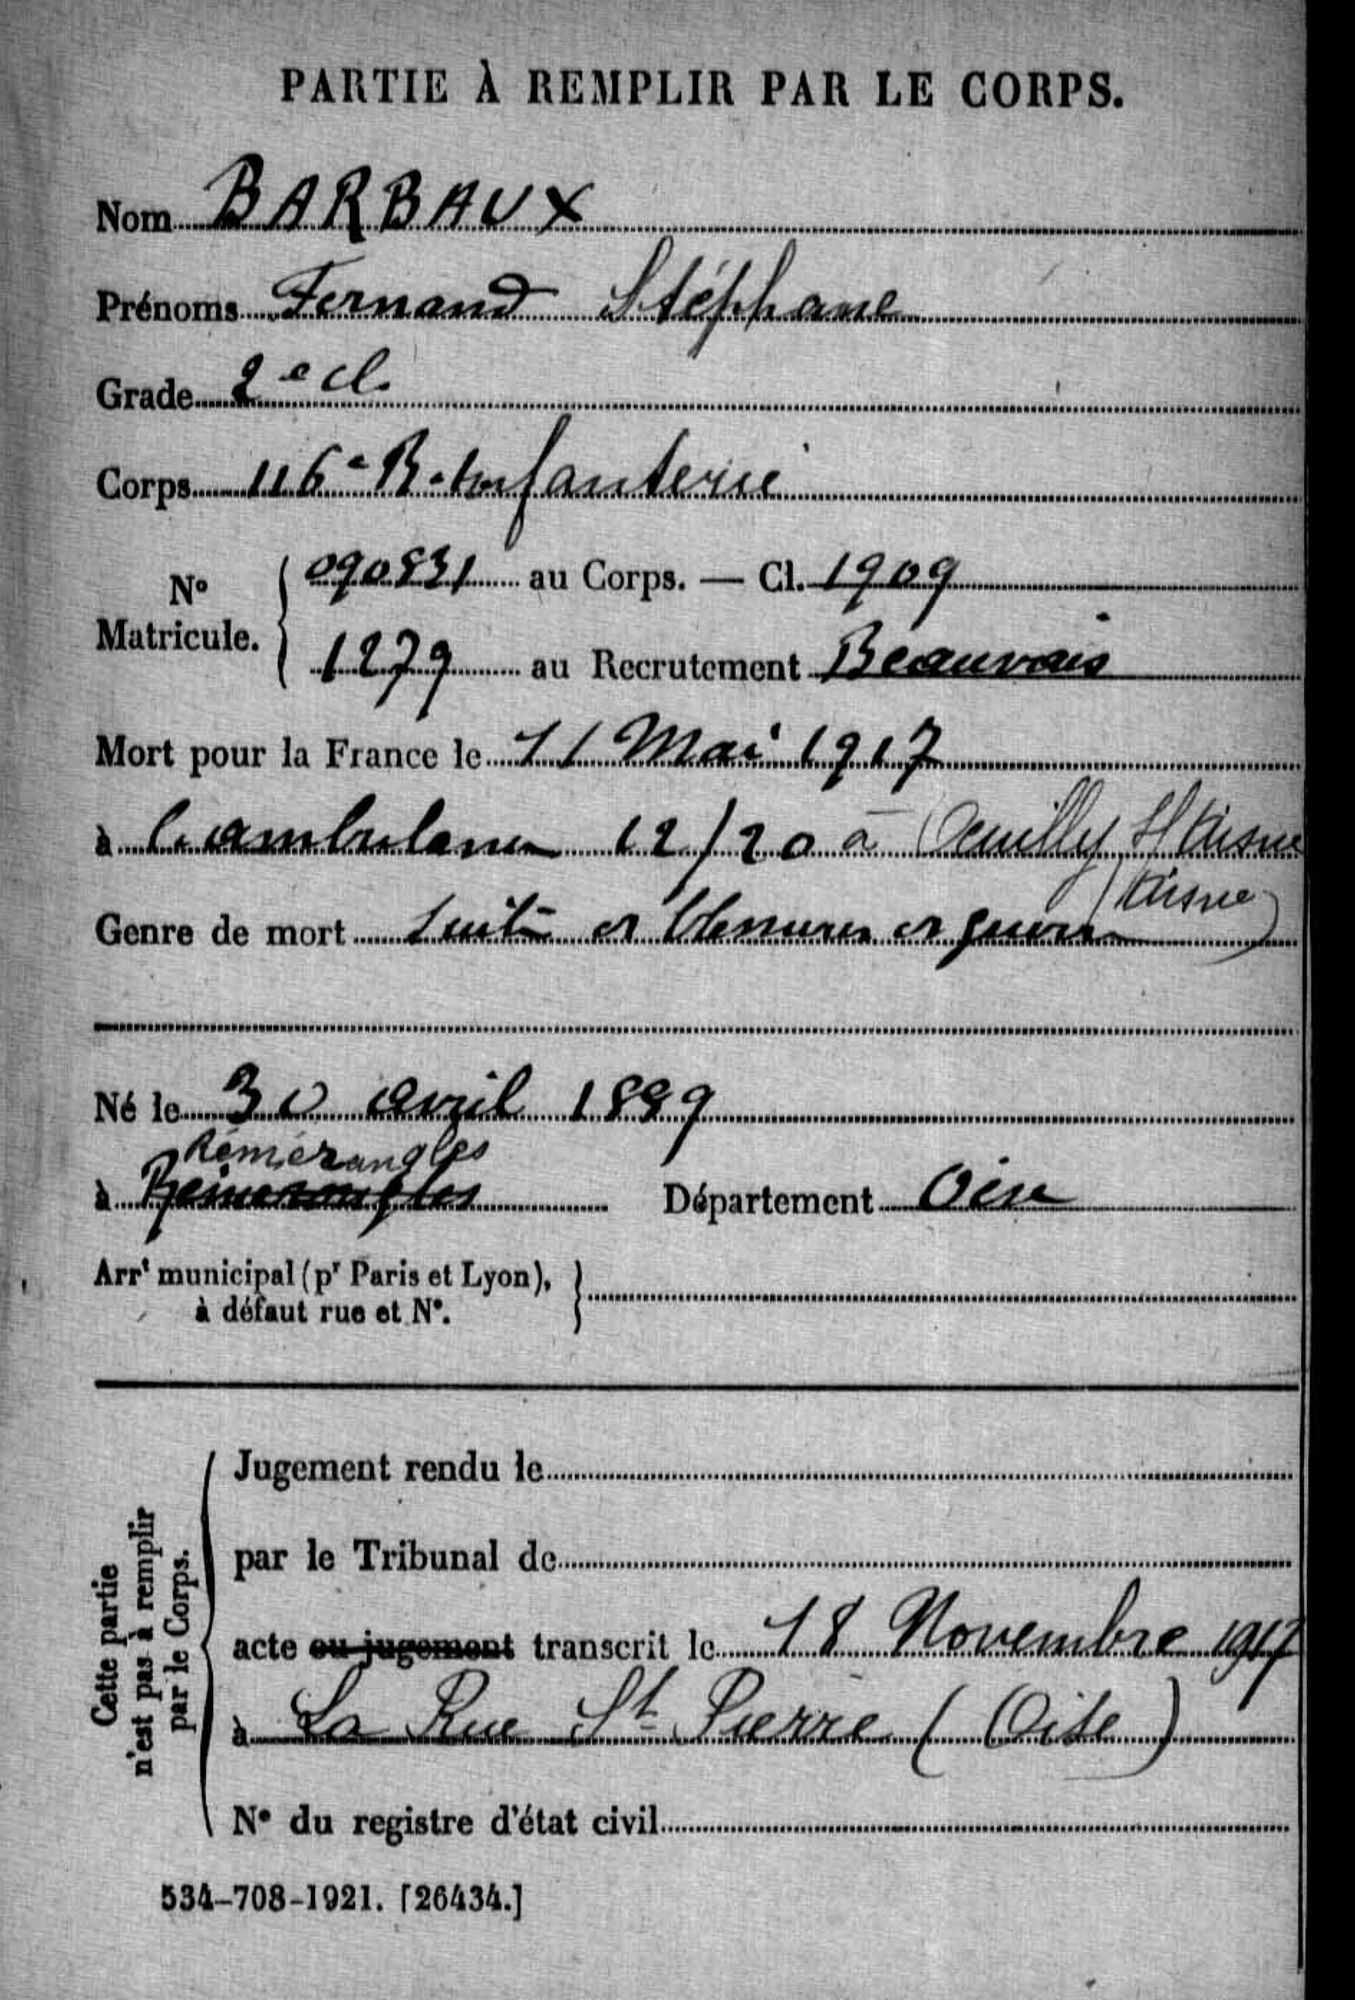 PARTIE À REMPLIR PAR LE CORPS.
Nom BARBAUX
Prénoms Fernand Stéphane
Grade 2e cl.
Corps 116e R. Infanterie
No Matricule. 090831 au Corps. — Cl. 1909
1279 au Recrutement Beauvais
Mort pour la France le 11 Mai 1917
à l'ambulance 12/20 à Oeuilly S/ Aisne
(Aisne)
Genre de mort Suite de blessures de guerre
Né le 30 avril 1889
Rémérangles
à Département Oise
Arrt municipal (pr Paris et Lyon),
à défaut rue et No.
Cette partie
n'est pas à remplir
par le Corps.
Jugement rendu le
par le Tribunal de
acte ou jugement transcrit le 18 Novembre 1917
à La Rue St Pierre (Oise)
No du registre d'état civil
534-708-1921. [26434.]